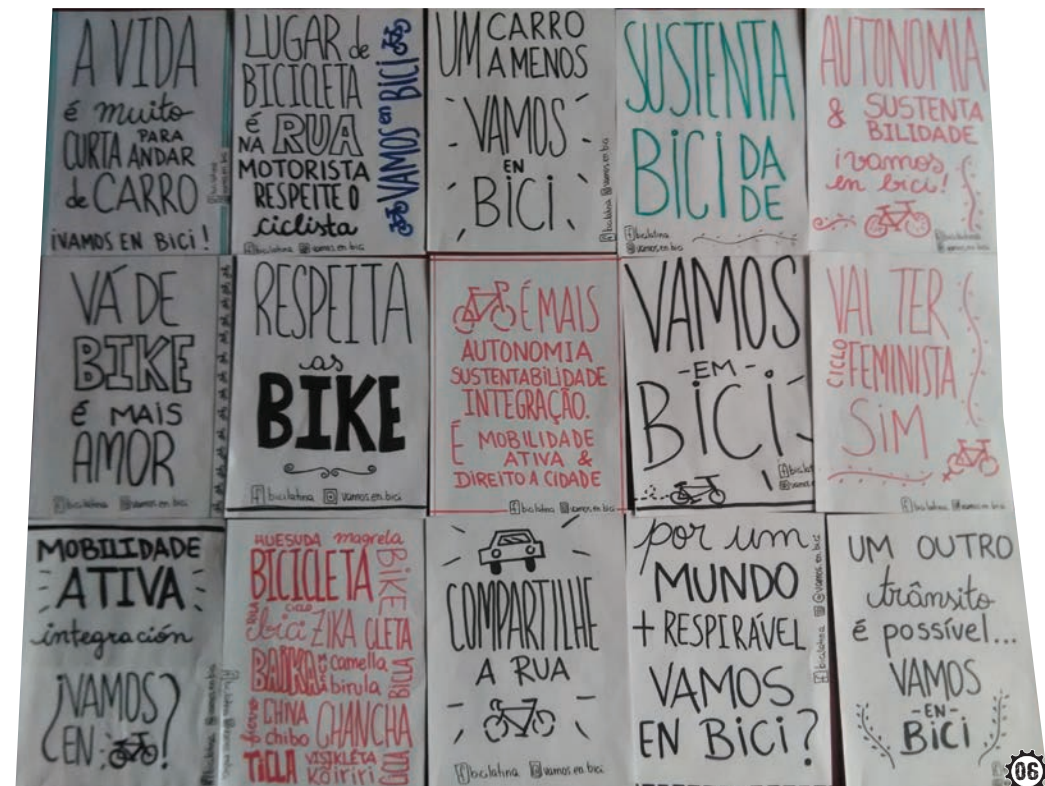 A VIDA
é muito
CURTA PARA
ANDAR
de CARRO
¡VAMOS EN BICI!
LUGAR de
BICICLETA
é
NA RUA
MOTORISTA
RESPEITE O
ciclista
VAMOS en BICI
bicilatina vamos.en.bici
UM CARRO
A MENOS
VAMOS
EN
BICI
bicilatina vamos.en.bici
SUSTENTA
BICI DA
DE
bicilatina
vamos.en.bici
AUTONOMIA
& SUSTENTA
BILIDADE
¡vamos
en bici!
bicilatina
vamos.en.bici
VÁ DE
BIKE
é MAIS
AMOR
bicilatina vamos.en.bici
RESPEITA
as
BIKE
bicilatina vamos.en.bici
É MAIS
AUTONOMIA
SUSTENTABILIDADE
INTEGRAÇÃO.
É MOBILIDADE
ATIVA &
DIREITO A CIDADE
bicilatina vamos.en.bici
VAMOS
-EM-
BICI
VAI TER
CICLO
FEMINISTA
SIM
bicilatina vamos.en.bici
MOBILIDADE
ATIVA
integración
¿VAMOS
EN ?
HUESUDA magrela
BICICLETA
BIKE
CICLO
bici ZIKA CLETA
BAIKA camella
birula
BICLA
CHIVA
chibo CHANCHA
TICLA VISIKLÉTA
Köiriri
COMPARTILHE
A RUA
bicilatina vamos.en.bici
por um
MUNDO
+ RESPIRÁVEL
VAMOS
EN BICI?
bicilatina @vamos.en.bici
UM OUTRO
trânsito
é possível...
VAMOS
-EN-
BICI
06